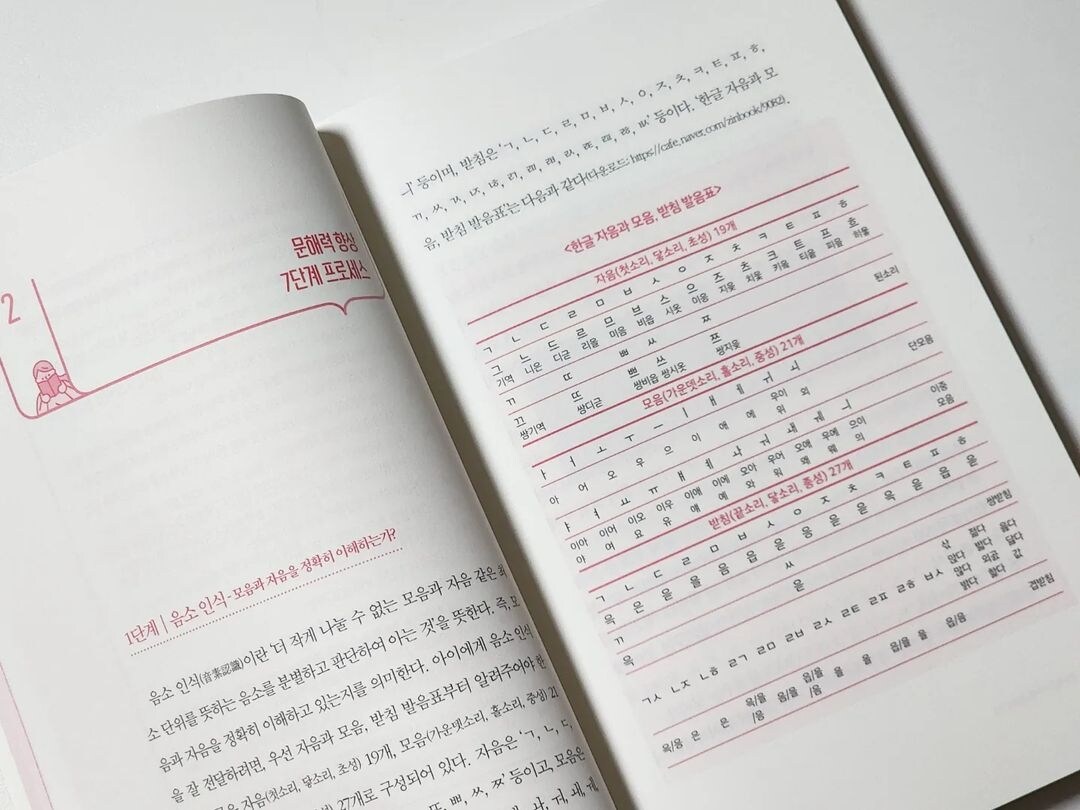 2
문해력 향상
7단계 프로세스
1단계 | 음소 인식-모음과 자음을 정확히 이해하는가?
음소 인식(音素認識)이란 '더 작게 나눌 수 없는 모음과 자음 같은 최
소 단위를 뜻하는 음소를 분별하고 판단하여 아는 것'을 뜻한다. 즉, 모
음과 자음을 정확히 이해하고 있는지를 의미한다. 아이에게 음소 인식
을 잘 전달하려면, 우선 자음과 모음, 받침 발음표부터 알려주어야 한
자음(첫소리, 닿소리, 초성) 19개, 모음(가운뎃소리, 홀소리, 중성) 21
27개로 구성되어 있다. 자음은 'ㄱ, ㄴ, ㄷ,
ㅃ, ㅆ, ㅉ' 등이고, 모음은
ㅘ, ㅝ, ㅙ, ㅞ,
ㅢ' 등이며, 받침은 'ㄱ, ㄴ, ㄷ, ㄹ, ㅁ, ㅂ, ㅅ, ㅇ, ㅈ, ㅊ, ㅋ, ㅌ, ㅍ, ㅎ,
ㄲ, ㅆ, ㄳ, ㄵ, ㄶ, ㄺ, ㄻ, ㄼ, ㄽ, ㄾ, ㄿ, ㅀ, ㅄ' 등이다. '한글 자음과 모
음, 받침 발음표'는 다음과 같다(다운로드: https://cafe.naver.com/zinbook/9082).
<한글 자음과 모음, 받침 발음표>
자음(첫소리, 닿소리, 초성) 19개
ㄱ ㄴ ㄷ ㄹ ㅁ ㅂ ㅅ ㅇ ㅈ ㅊ ㅋ ㅌ ㅍ ㅎ
그 느 드 르 므 브 스 으 즈 츠 크 트 프 흐
기역 니은 디귿 리을 미음 비읍 시옷 이응 지읒 치읓 키읔 티읕 피읖 히읗
ㄲ ㄸ ㅃ ㅆ ㅉ 된소리
끄 뜨 쁘 쓰 쯔
쌍기역 쌍디귿 쌍비읍 쌍시옷 쌍지읒
모음(가운뎃소리, 홀소리, 중성) 21개
ㅏ ㅓ ㅗ ㅜ ㅡ ㅣ ㅐ ㅔ ㅟ ㅚ 단모음
우이 외
아 어 오 우 으 이 애 에 위
ㅑ ㅕ ㅛ ㅠ ㅒ ㅖ ㅘ ㅝ ㅙ ㅞ ㅢ 이중
모음
이아 이어 이오 이우 이애 이에 오아 우어 오애 우에 으이
야 여 요 유 얘 예 와 워 왜 웨 의
받침(끝소리, 닿소리, 종성) 27개
ㄱ ㄴ ㄷ ㄹ ㅁ ㅂ ㅅ ㅇ ㅈ ㅊ ㅋ ㅌ ㅍ ㅎ
윽 은 읃 을 음 읍 읃 응 읃 읃 윽 읃 읍 읃
ㄲ ㅆ 쌍받침
윽 읃
삯 젊다 읊다
앉다 밟다 닳다
많다 외곬 값
밝다 핥다
ㄱㅅ ㄴㅈ ㄴㅎ ㄹㄱ ㄹㅁ ㄹㅂ ㄹㅅ ㄹㅌ ㄹㅍ ㄹㅎ ㅂㅅ 겹받침